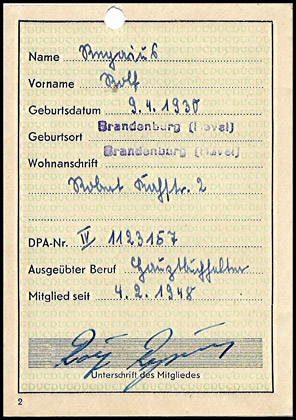 Name Regaius
Vorname Rolf
Geburtsdatum 9.4.1930
Geburtsort Brandenburg (Havel)
Wohnanschrift Brandenburg (Havel)
Robert Kochstr. 2
DPA-Nr. IV 1123157
Ausgeübter Beruf Hauptbuchhalter
Mitglied seit 4.2.1948
Unterschrift des Mitgliedes
2